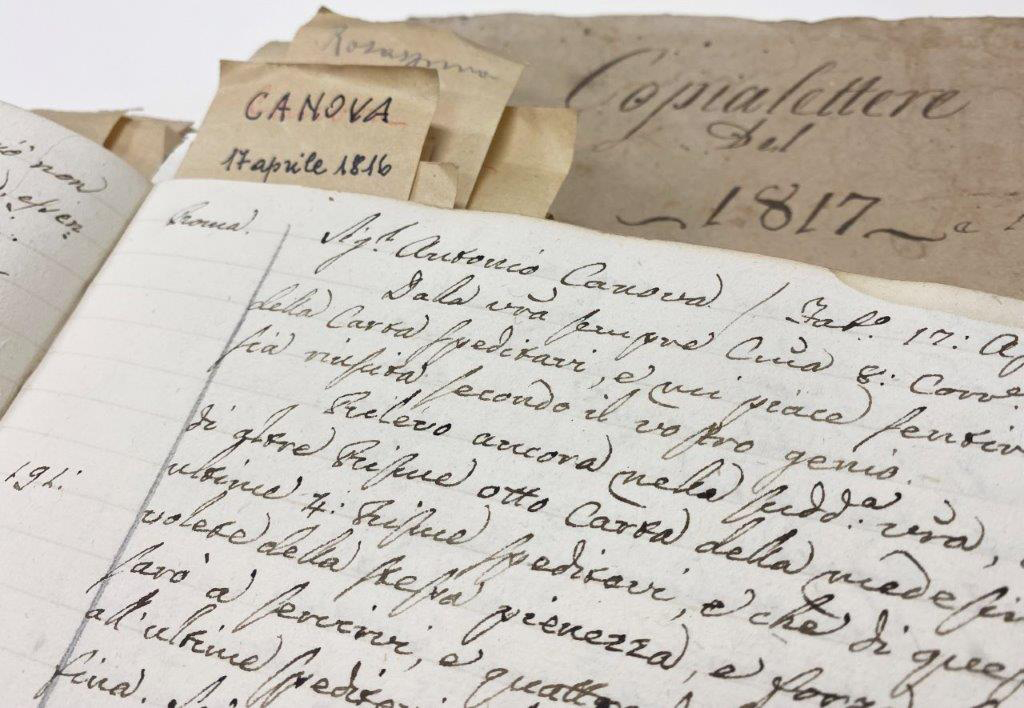 Rosaspina
CANOVA
17 aprile 1816
Copialettere
Del
1817
a
non
Roma.
Sig.r Antonio Canova / Fab.o 17: Ap
Dalla vr̃a sempre Cara 8: Corr.e
della Carta speditavi, e mi piace sentir
sia riuscita secondo il vostro genio.
Rilevo ancora nella sudd.a vr̃a,
di altre Risme otto Carta della medesim
ultime 4: Risme speditavi, e che di ques
volete della stessa pienezza, e forz
191:
sarò à servirvi, e quattro
all'ultime speditavi
fina.